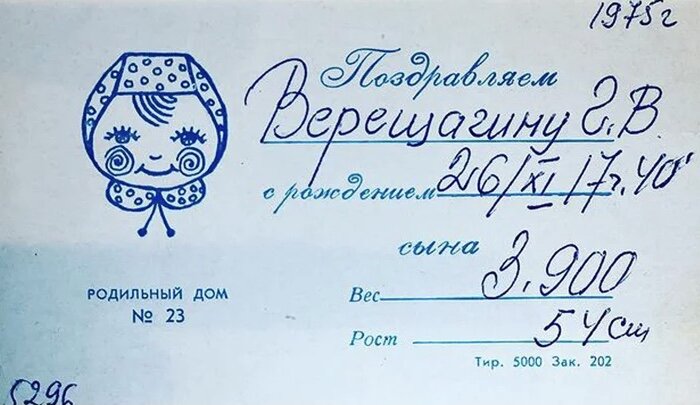 1975г
Поздравляем
Верещагину Г.В.
с рождением 26/XI 17ч.40'
сына
Вес 3.900
Рост 54см
РОДИЛЬНЫЙ ДОМ
№ 23
Тир. 5000 Зак. 202
5296